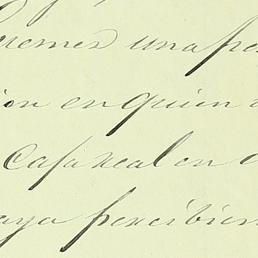 remos una per
ion en quien
Casa Real en
aya percibien